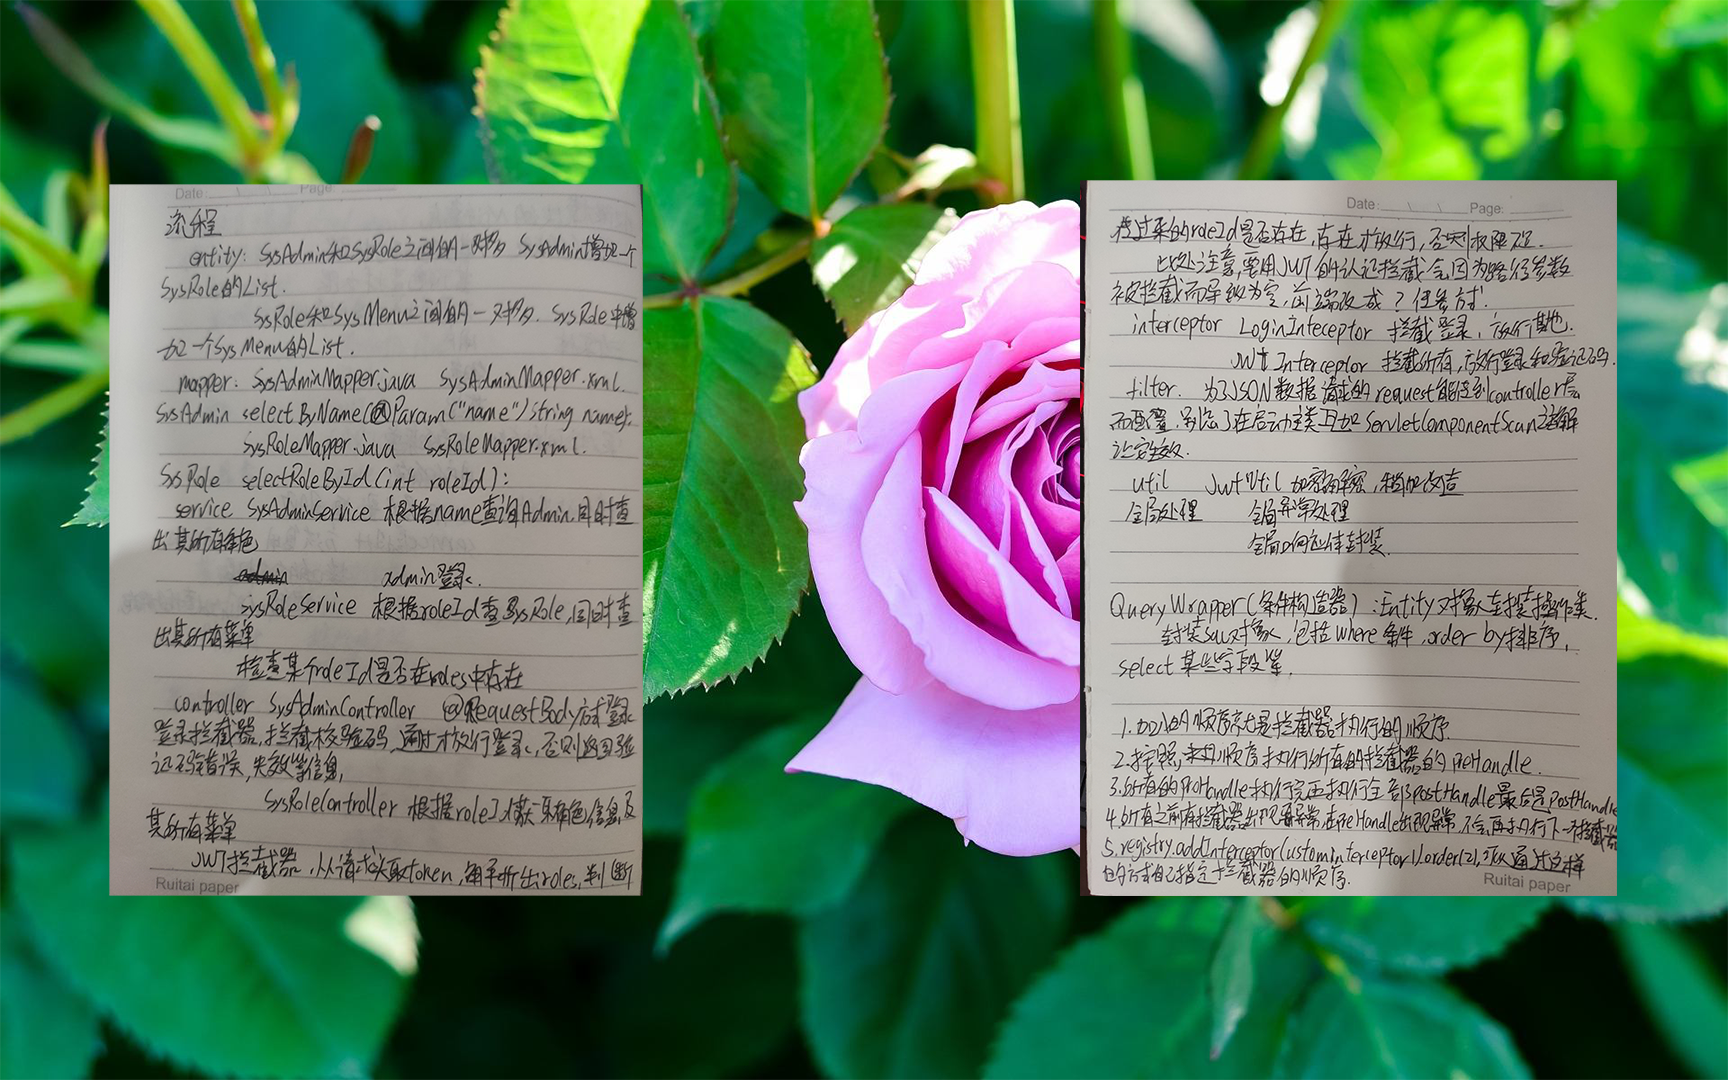 Date: Page:
流程
entity: SysAdmin和SysRole之间的一对多 SysAdmin增加一个
SysRole的List.
SysRole和SysMenu之间的一对多. SysRole中增
加一个SysMenu的List.
mapper: SysAdminMapper.java SysAdminMapper.xml.
SysAdmin selectByName(@Param("name")String name);
SysRoleMapper.java SysRoleMapper.xml.
SysRole selectRoleById(int roleId);
service SysAdminService 根据name查询Admin,同时查
出其所有角色
admin登录.
sysRoleService 根据roleId查SysRole,同时查
出其所有菜单
检查某个roleId是否在roles中存在
controller SysAdminController @RequestBody方式登录
登录拦截器,拦截校验码,通过才放行登录,否则返回验
证码错误,失效等信息,
SysRoleController 根据roleId获取角色信息及
其所有菜单
JWT拦截器,从请求头取token,解析出roles,判断
Ruitai paper
Date: Page:
传过来的roleId是否存在,存在才放行,否则权限不足.
此处注意,要用JWT的认证拦截会因为路径参数
被拦截而导致为空,前端改成?任务式.
interceptor LoginInteceptor 拦截登录,放行其他.
JWTInterceptor 拦截所有,放行登录和验证码.
filter. 为了JSON数据 的request能达到controller层
而配置,别忘了在启动主类上加ServletComponentScan注解
让它生效.
util JwtUtil 加密解密,稍加改造
全局处理 全局异常处理
全局响应体封装.
QueryWrapper(条件构造器):Entity对象封装操作类
封装sql对象,包括where条件,order by排序,
select某些字段等.
1.加入的顺序就是拦截器执行的顺序.
2.按照,顺序执行所有的拦截器的preHandle.
3.所有的preHandle执行完再执行全部postHandle最后是postHandle
4.所有之前有拦截器出现异常,在preHandle出现异常,不会再执行下一拦截器
5.registry.addInterceptor(customInterceptor1).order(2),可以通过这样
的方式自己指定拦截器的顺序.
Ruitai paper